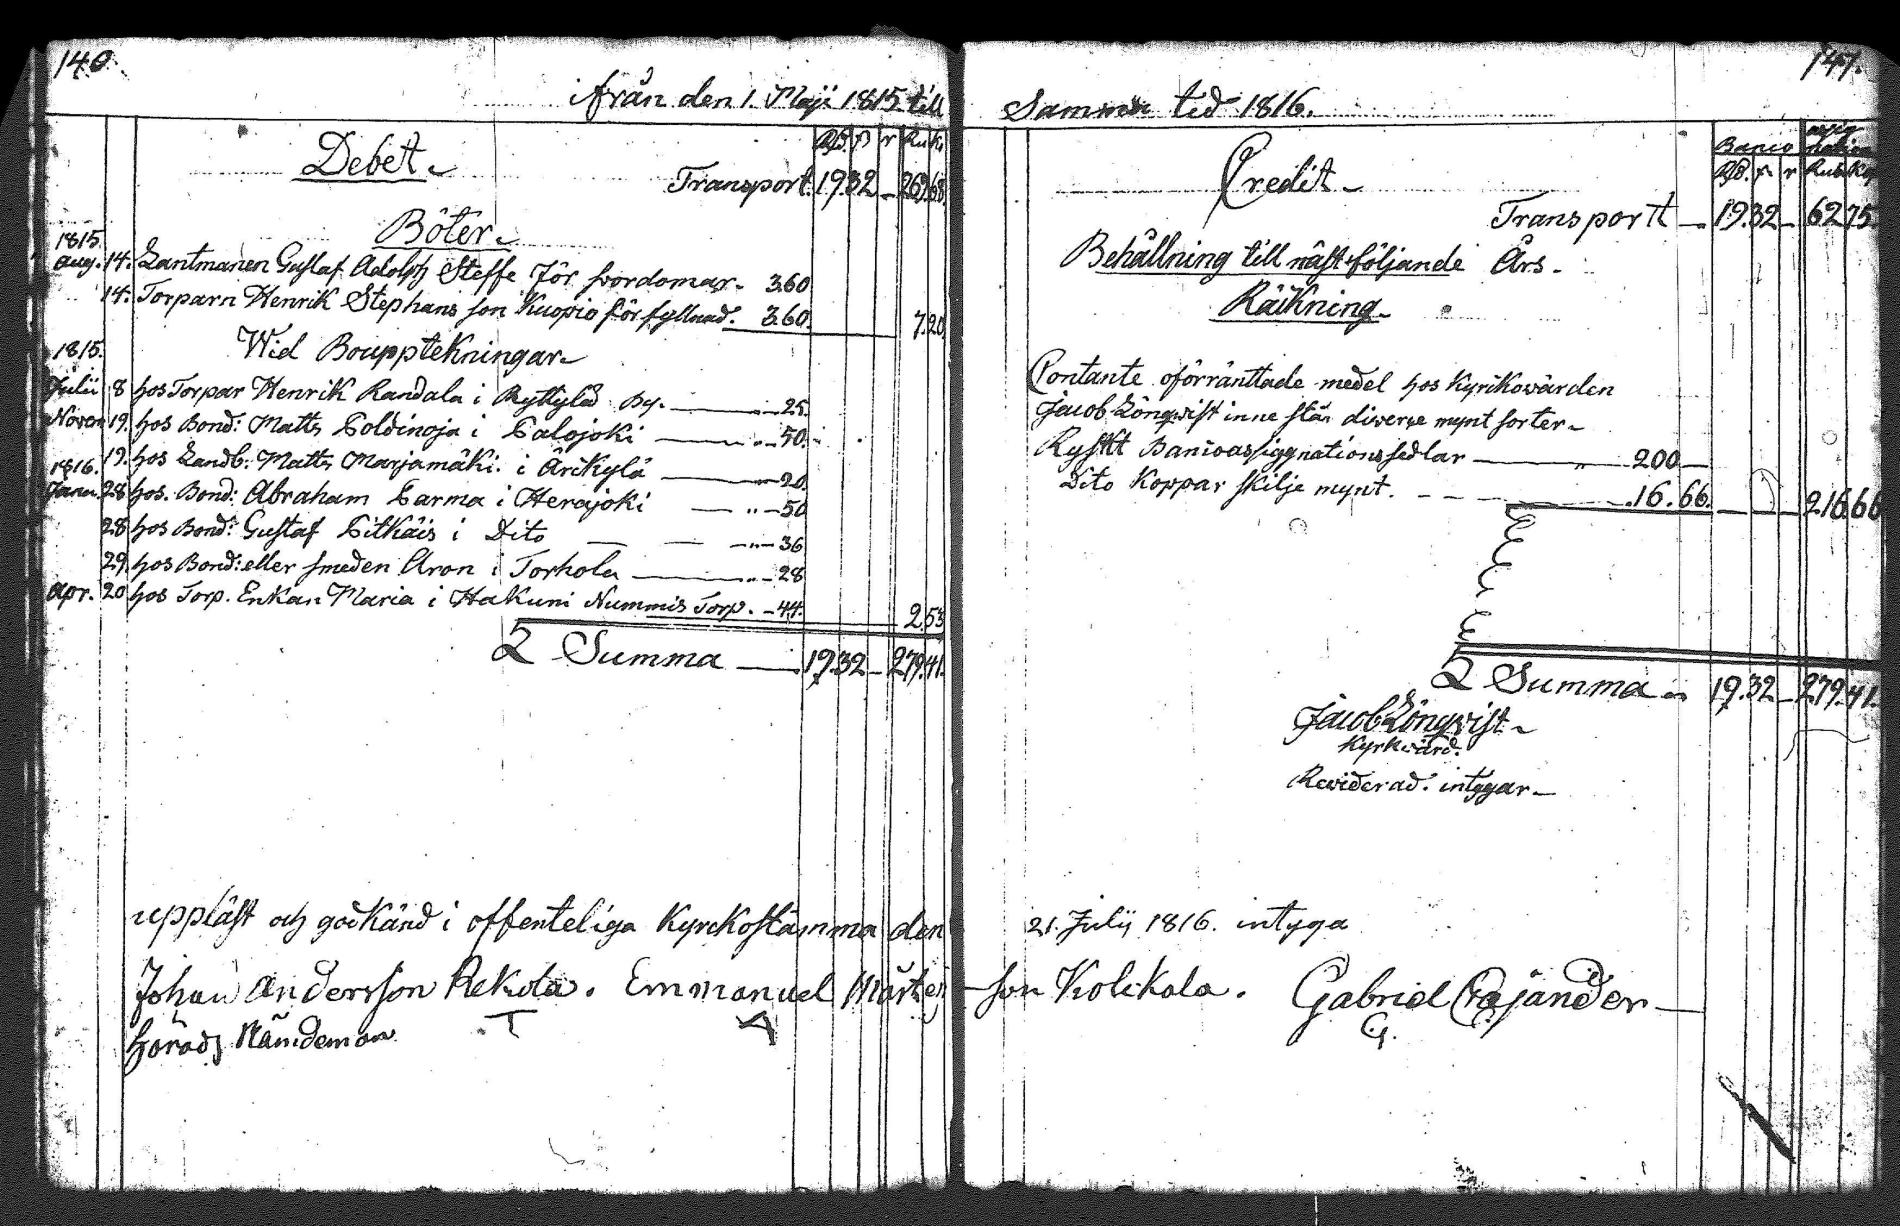 140.
ifrån den 1. Maji 1815. till
Debet
Rd. ß r Ru K.
Transport 19.32 – 269.68.
Böter
1815.
Aug. 14. Lantmanen Gustaf Adolph Steffe för svordomar 3.60
14. Torparn Henrik Stephans son Kuopio för fyllnad. 3.60. 7.20
Wid Bouppteckningar
1815.
Julii 8 hos Torpar Henrik Randala i Ryttylä By. 25.
Novem 19. hos Bond: Matts Poldinoja i Palojoki 50.
19. hos Landb: Matts Marjamäki i Ärikylä 20.
1816.
Janu. 28 hos Bond: Abraham Parma i Herajoki 50
28 hos Bond: Gustaf Pitkäis i Dito 36
29. hos Bond: eller smeden Aron i Torhola 28
Apr. 20 hos Torp. Enkan Maria i Hakuni Nummis Torp. 44. 2.53
Summa 19.32 – 279.41.
uppläst och godkänd i offenteliga Kyrckostämma den
Johan Andersson Rekola. Emmanuel Mårten
Härads Nämdeman
147.
Samma tid 1816.
Credit
Banco assignation
Rd. ß r Rub. Kop
Transportt 19.32 – 62.75.
Behållning till nästföljande Års
Räkning
Contante oförränttade medel hos Kyrkovärden
Jacob Lönqvist inne står diverse mynt sorter
Ryskt Bancoassiggnationssedlar 200
Dito Koppar skilje mynt. 16.66. 216.66
Summa 19.32 – 279.41.
Jacob Lönqvist
Kyrkvärd.
Reviderad. intygar
21. Julii 1816. intyga
son Kolckala. Gabriel Cajander
G.